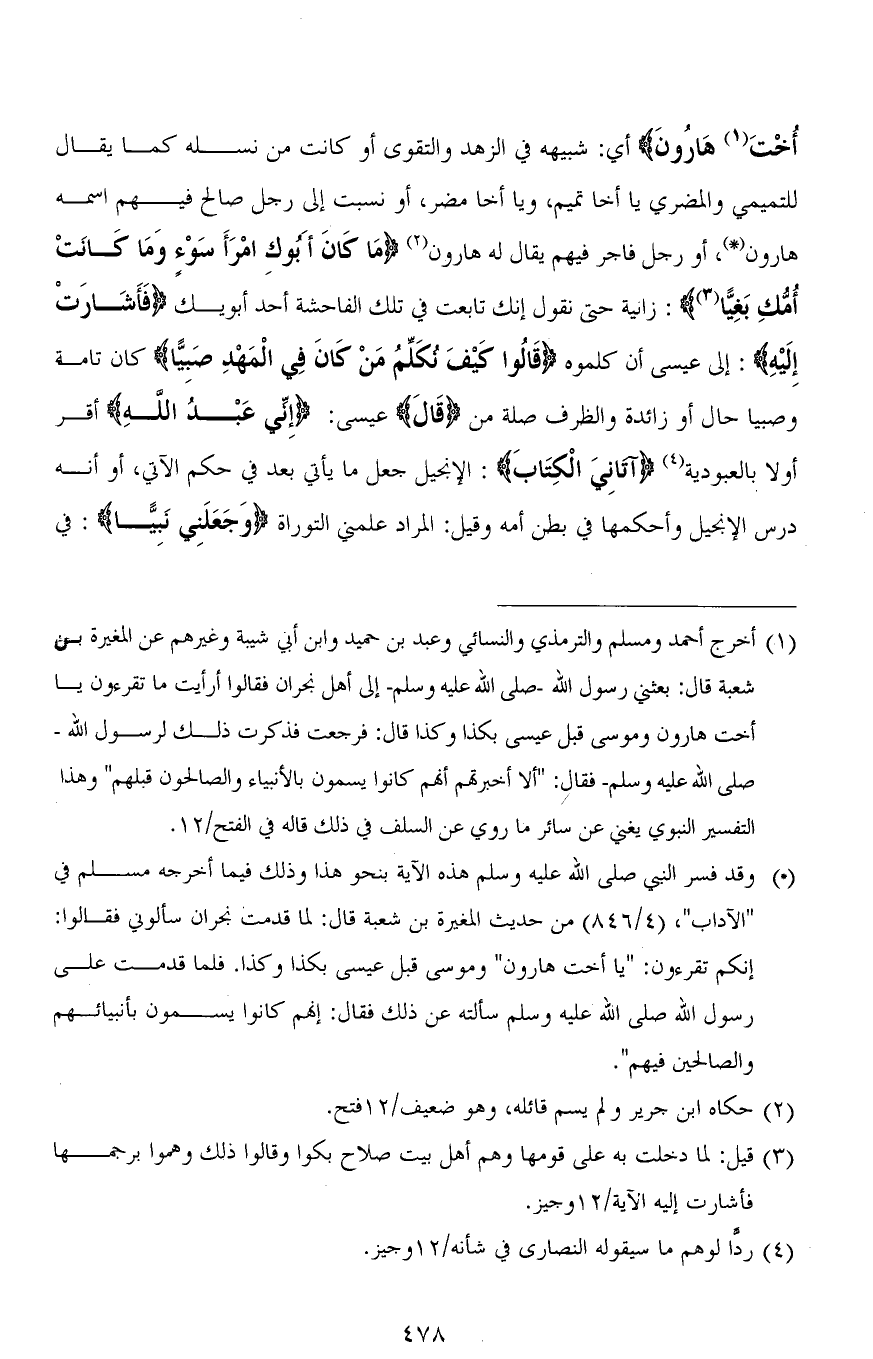 أُخْتَ(١) هَارُونَ﴾ أي: شبيهه في الزهد والتقوى أو كانت من نسله كما يقال
للتميمي والمضري يا أخا تميم، ويا أخا مضر، أو نسبت إلى رجل صالح فيهم اسمه
هارون(*)، أو رجل فاجر فيهم يقال له هارون(٢) ﴿مَا كَانَ أَبُوكِ امْرَأَ سَوْءٍ وَمَا كَانَتْ
أُمُّكِ بَغِيًّا(٣)﴾ : زانية حتى نقول إنك تابعت في تلك الفاحشة أحد أبويك ﴿فَأَشَارَتْ
إِلَيْهِ﴾ : إلى عيسى أن كلموه ﴿قَالُوا كَيْفَ نُكَلِّمُ مَنْ كَانَ فِي الْمَهْدِ صَبِيًّا﴾ كان تامة
وصبيا حال أو زائدة والظرف صلة من ﴿قَالَ﴾ عيسى: ﴿إِنِّي عَبْدُ اللَّهِ﴾ أقر
أولا بالعبودية(٤) ﴿آتَانِيَ الْكِتَابَ﴾ : الإنجيل جعل ما يأتي بعد في حكم الآتي، أو أنه
درس الإنجيل وأحكمها في بطن أمه وقيل: المراد علمني التوراة ﴿وَجَعَلَنِي نَبِيًّا﴾ : في
(١) أخرج أحمد ومسلم والترمذي والنسائي وعبد بن حميد وابن أبي شيبة وغيرهم عن المغيرة بن
شعبة قال: بعثني رسول الله -صلى الله عليه وسلم- إلى أهل نجران فقالوا أرأيت ما تقرءون يا
أخت هارون وموسى قبل عيسى بكذا وكذا قال: فرجعت فذكرت ذلك لرسول الله -
صلى الله عليه وسلم- فقال: "ألا أخبرتهم أنهم كانوا يسمون بالأنبياء والصالحون قبلهم" وهذا
التفسير النبوي يغني عن سائر ما روي عن السلف في ذلك قاله في الفتح/١٢.
(*) وقد فسر النبي صلى الله عليه وسلم هذه الآية بنحو هذا وذلك فيما أخرجه مسلم في
"الآداب"، (٨٤٦/٤) من حديث المغيرة بن شعبة قال: لما قدمت نجران سألوني فقالوا:
إنكم تقرءون: "يا أخت هارون" وموسى قبل عيسى بكذا وكذا. فلما قدمت على
رسول الله صلى الله عليه وسلم سألته عن ذلك فقال: إنهم كانوا يسمون بأنبيائهم
والصالحين فيهم".
(٢) حكاه ابن جرير ولم يسم قائله، وهو ضعيف/١٢فتح.
(٣) قيل: لما دخلت به على قومها وهم أهل بيت صلاح بكوا وقالوا ذلك وهموا برجمها
فأشارت إليه الآية/١٢وجيز.
(٤) ردًّا لوهم ما سيقوله النصارى في شأنه/١٢وجيز.
٤٧٨